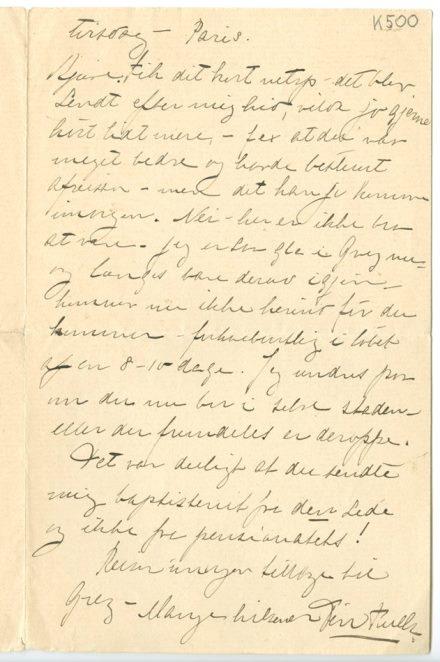 K500
tirsdag – Paris.
Kjære, fik dit kort netop – det blev
sendt efter mig hid, vilde jo gjerne
hørt lidt mere, – f.ex at du var
meget bedre og havde bestemt
afreisen – men det kan jo komme
imorgen. Nei – her er ikke bra
at være. Jeg er saa gla i Grez nu –
og længes bare derav igjen –
kommer nu ikke herind før du
kommer – forhaabentlig i løbet
af en 8–10 dage. Jeg undres paa
om du nu bor i selve staden –
eller du fremdeles er deroppe.
Det var deiligt at du sendte
mig baptisteriet fra den side
og ikke fra pensionatets!
Reiser imorgen tilbage til
Grez – Mange hilsener Din